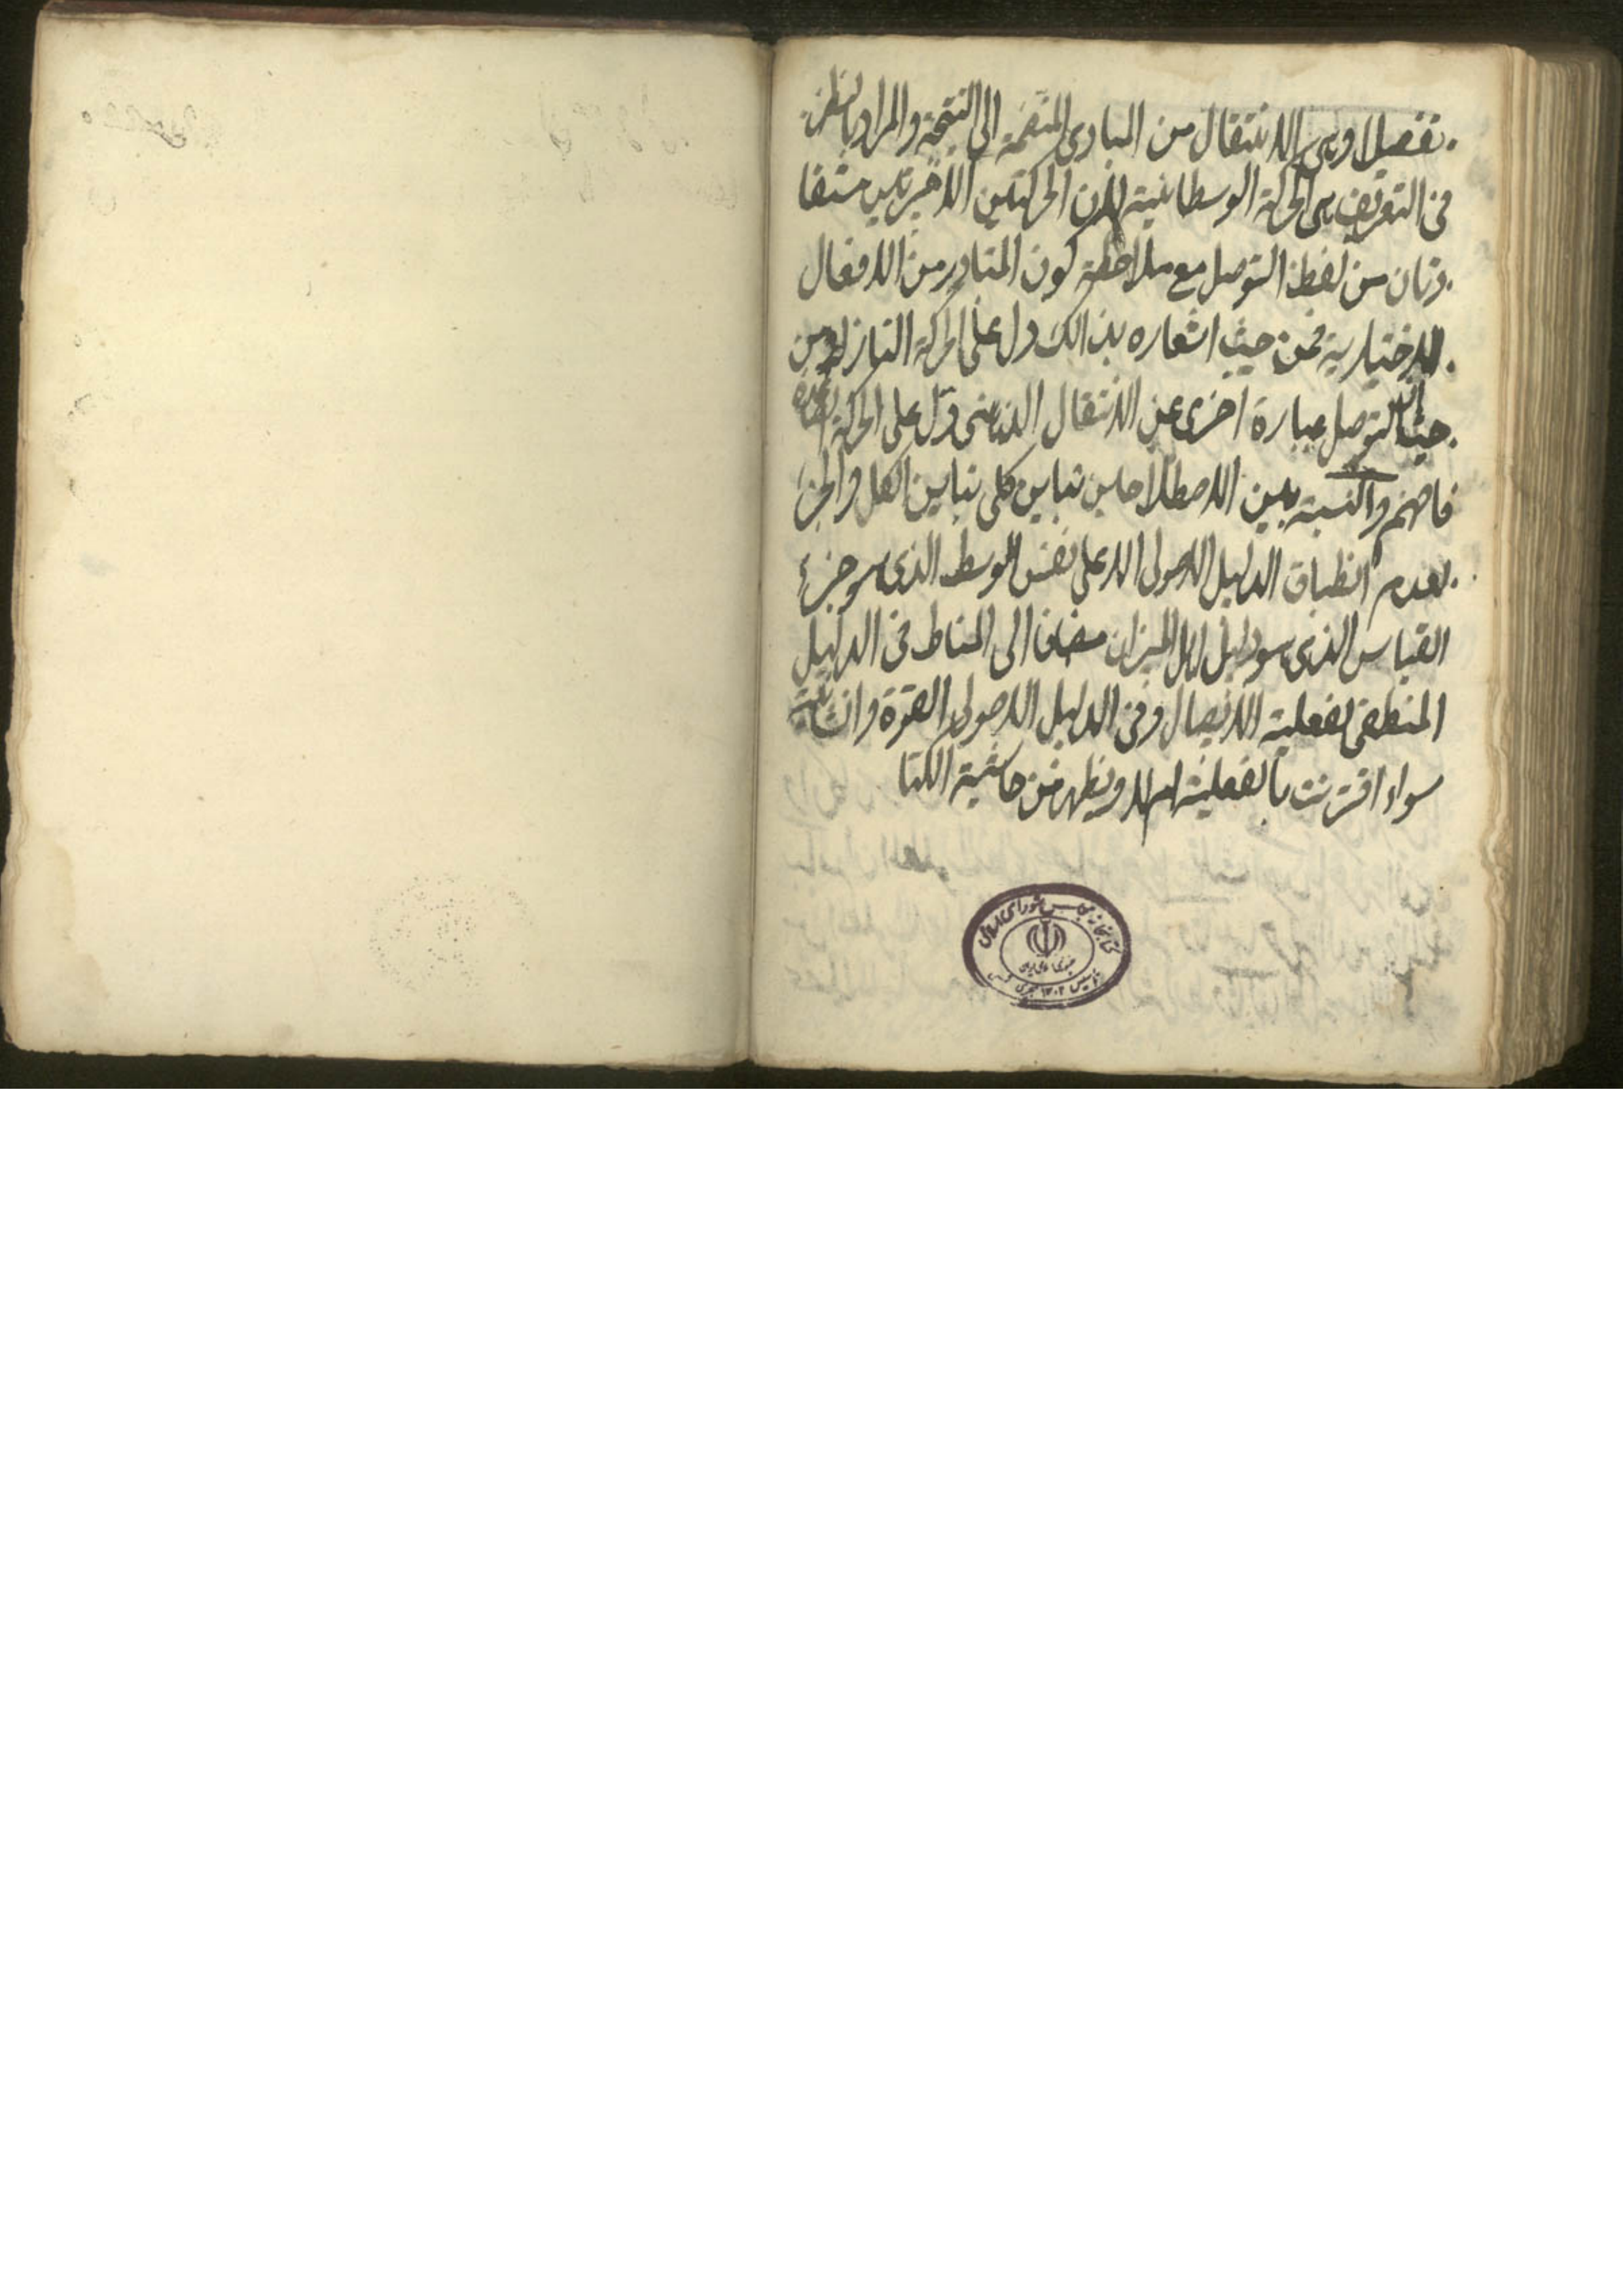 تفصيلا وهى الانتقال من المبادى المنتظمة الى النتيجة والمراد بالنظر
فى التعريف هى الحركة الوسطانية لان الحركتين الاخيرتين مستفا
دتان من لفظ التوصل مع ملاحظة كون المتبادر من الافعال
الاختيارية فمن حيث اشعاره بذالك دل على الحركة النازلة ومن
حيث ان التوصل عبارة اخرى عن الانتقال الذهنى دل على الحركة الصاعدة
فافهم والنسبة بين الاصطلاحين تباين كلى تباين الكل والجزء
لعدم انطباق الدليل الاصولى الا على نفس الوسط الذى هو جزء
القياس الذى هو دليل اهل الميزان مضافا الى المناط فى الدليل
المنطقى لفعلية الايصال وفى الدليل الاصولى القوة والشأنية
سواء اقترنت بالفعلية ام لا ويظهر من حاشية الكتا
كتابخانه مجلس شورای اسلامی
جمهوری اسلامی ایران
تأسیس ۱۳۰۲ هجری شمسی